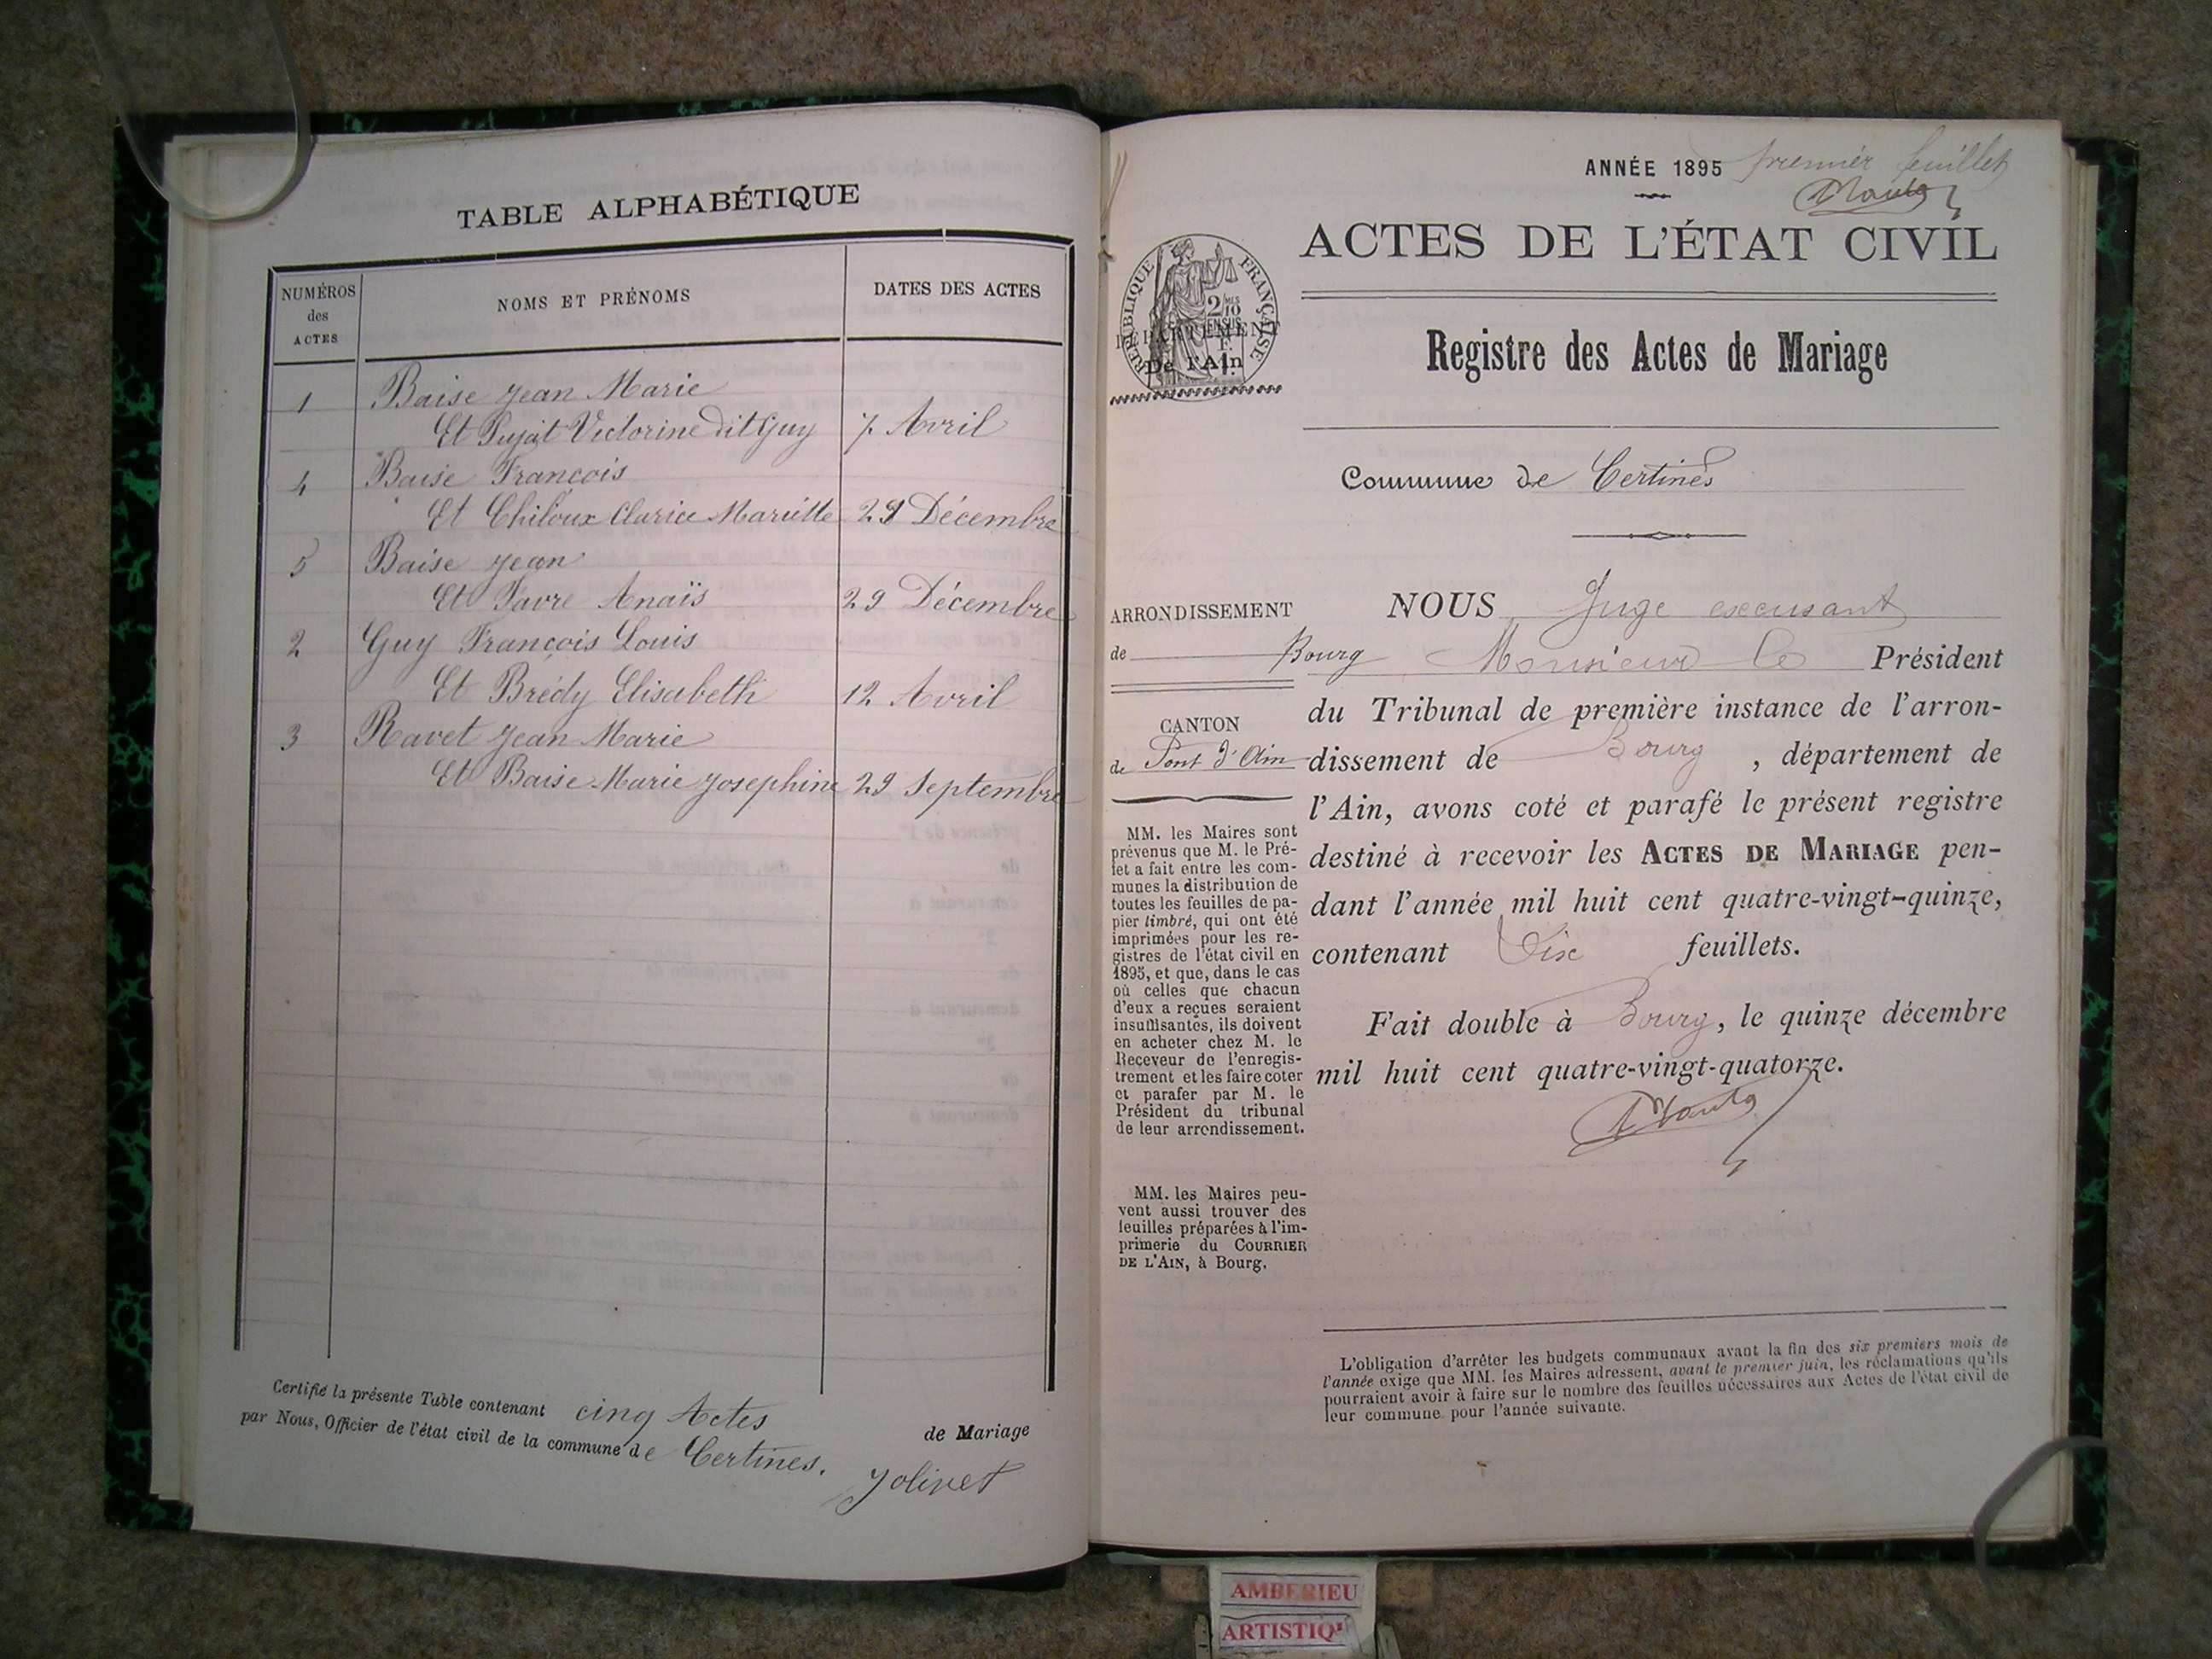 TABLE ALPHABÉTIQUE
NUMÉROS
des
ACTES
NOMS ET PRÉNOMS
DATES DES ACTES
1 Baise Jean Marie
Et Pujat Victorine dit Guy 7 Avril
4 Baise François
Et Chiloux Clarice Mariette 29 Décembre
5 Baise Jean
Et Favre Anaïs 29 Décembre
2 Guy François Louis
Et Brédy Elisabeth 12 Avril
3 Ravet Jean Marie
Et Baise Marie Josephine 29 Septembre
Certifié la présente Table contenant cinq Actes de Mariage
par Nous, Officier de l'état civil de la commune de Certines.
Jolivet
ANNÉE 1895 premier feuillet
ACTES DE L'ÉTAT CIVIL
RÉPUBLIQUE FRANÇAISE
2/10
EN SUS
DÉPARTEMENT
De l'Ain
Registre des Actes de Mariage
Commune de Certines
ARRONDISSEMENT
de Bourg
CANTON
de Pont d'Ain
MM. les Maires sont
prévenus que M. le Pré-
fet a fait entre les com-
munes la distribution de
toutes les feuilles de pa-
pier timbré, qui ont été
imprimées pour les re-
gistres de l'état civil en
1895, et que, dans le cas
où celles que chacun
d'eux a reçues seraient
insuffisantes, ils doivent
en acheter chez M. le
Receveur de l'enregis-
trement et les faire coter
et parafer par M. le
Président du tribunal
de leur arrondissement.
MM. les Maires peu-
vent aussi trouver des
feuilles préparées à l'im-
primerie du COURRIER
DE L'AIN, à Bourg.
NOUS Juge
Monsieur le Président
du Tribunal de première instance de l'arron-
dissement de Bourg, département de
l'Ain, avons coté et parafé le présent registre
destiné à recevoir les ACTES DE MARIAGE pen-
dant l'année mil huit cent quatre-vingt-quinze,
contenant feuillets.
Fait double à Bourg, le quinze décembre
mil huit cent quatre-vingt-quatorze.
L'obligation d'arrêter les budgets communaux avant la fin des six premiers mois de
l'année exige que MM. les Maires adressent, avant le premier juin, les réclamations qu'ils
pourraient avoir à faire sur le nombre des feuilles nécessaires aux Actes de l'état civil de
leur commune pour l'année suivante.
AMBERIEU
ARTISTIQ